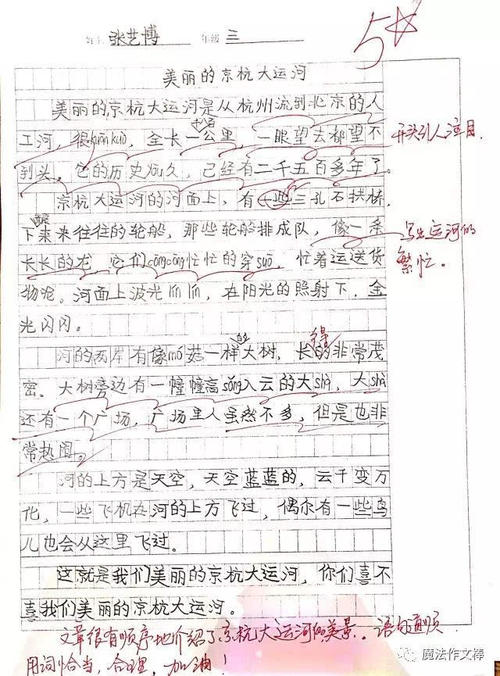 姓名 张艺博 年级 三
5☆
美丽的京杭大运河
美丽的京杭大运河是从杭州流到北京的人
工河，很kuān kuò，全长一公里，一眼望去都望不
到头。它的历史悠久，已经有二千五百多年了。
开头引人注目。
京杭大运河的河面上，有一些三孔不拱桥，
下来来往往的轮船，那些轮船排成队，像一条
长长的龙，它们cōng cōng忙忙的穿suō，忙着运送货
物呢。河面上波光lín lín，在阳光的照射下，金
光闪闪。
写出运河的
繁忙。
河的两岸有像mó菇一样大树，长的得非常茂
密。大树旁边有一幢幢高sǒng入云的大shà，大shà
还有一个广场，广场里人虽然不多，但是也非
常热闹。
河的上方是天空，天空蓝蓝的，云千变万
化，一些飞机在河的上方飞过，偶尔有一些鸟
儿也会从这里飞过。
这就是我们美丽的京杭大运河，你们喜不
喜我们美丽的京杭大运河。
文章很有顺序地介绍了京杭大运河的美景。语句通顺
用词恰当，合理，加油！
魔法作文棒